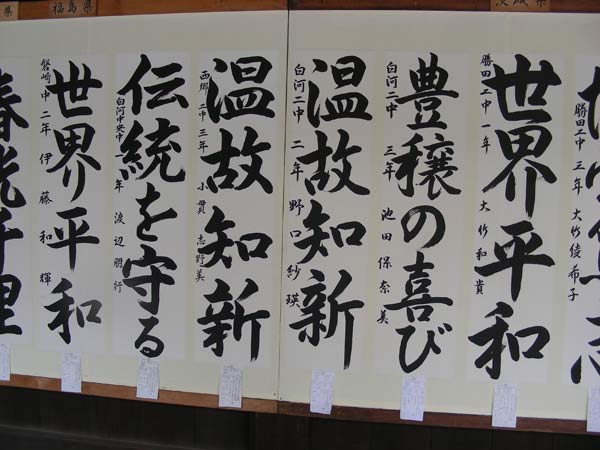 茨城県
勝田二中 三年 大竹綾希子
世界平和
勝田二中 一年 大竹和貴
豊穣の喜び
白河二中 三年 池田保奈美
温故知新
白河二中 二年 野口紗瑛
福島県
温故知新
西郷二中 三年 小貫志野美
伝統を守る
白河中央中 一年 渡辺朋行
世界平和
磐崎中 二年 伊藤和輝
県
春光千里